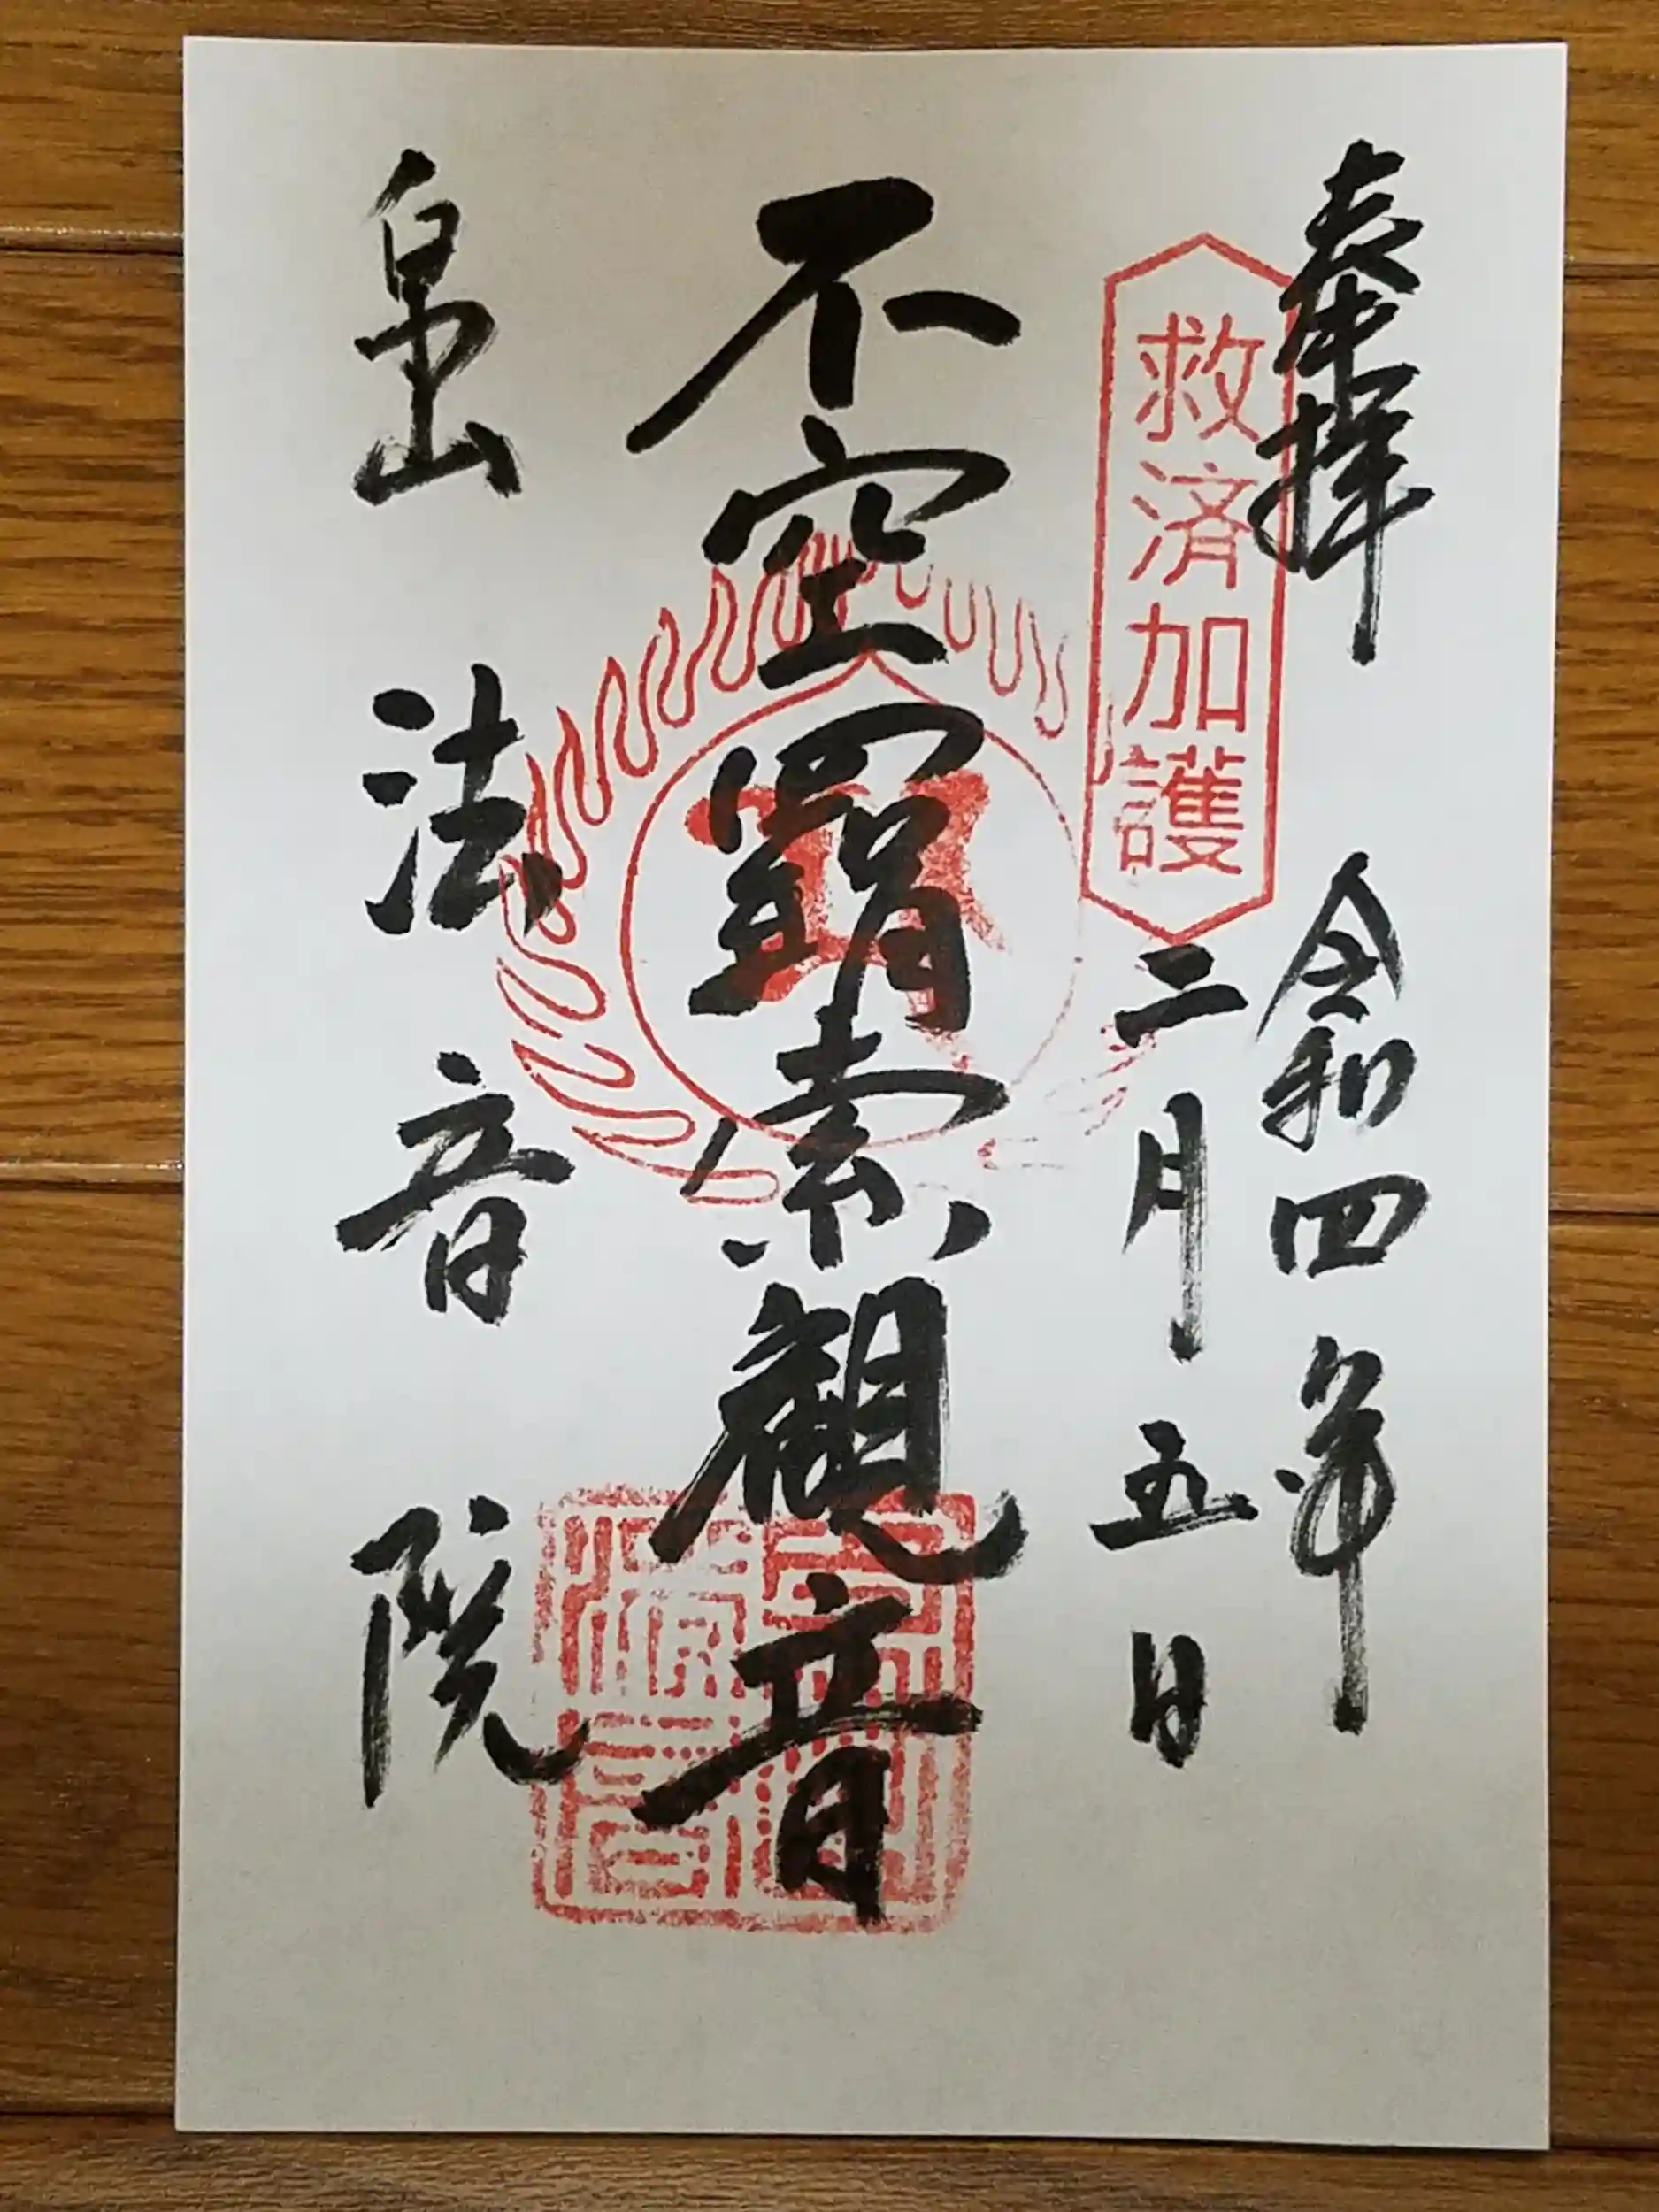 奉拝
令和四年
救済加護
二月五日
不空羂索觀音
泉山
法音院